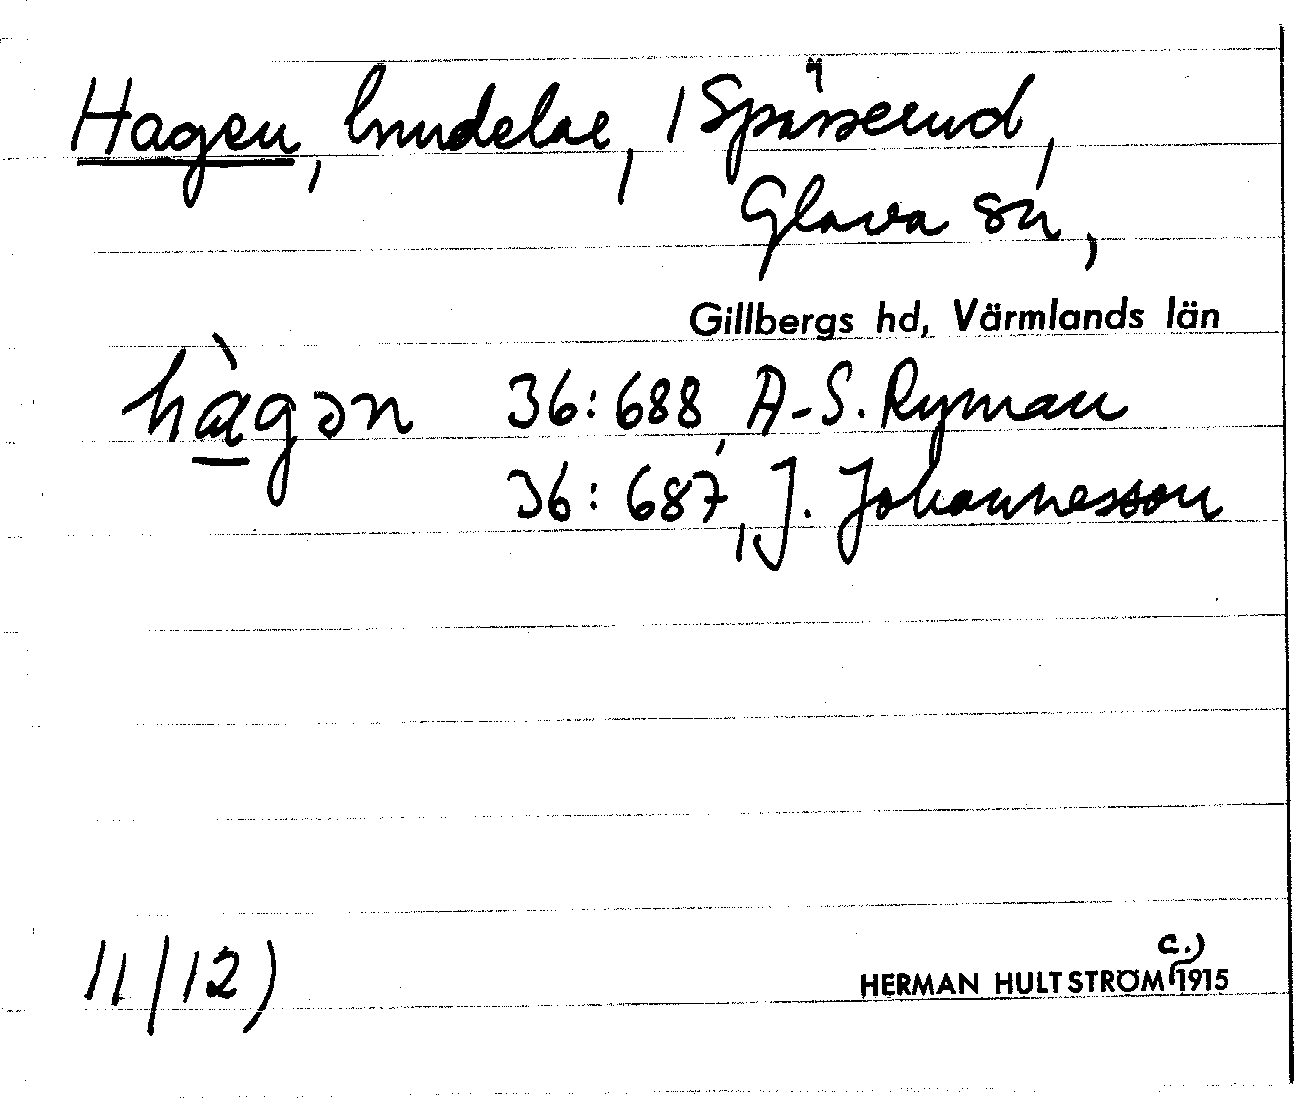 Hagen, hmdelar, / Spässerud,
Glava sn,
Gillbergs hd, Värmlands län
hàgən 36:688, A-S. Ryman
36:687, J. Johannesson
11/12) HERMAN HULTSTRÖM (c.) 1915